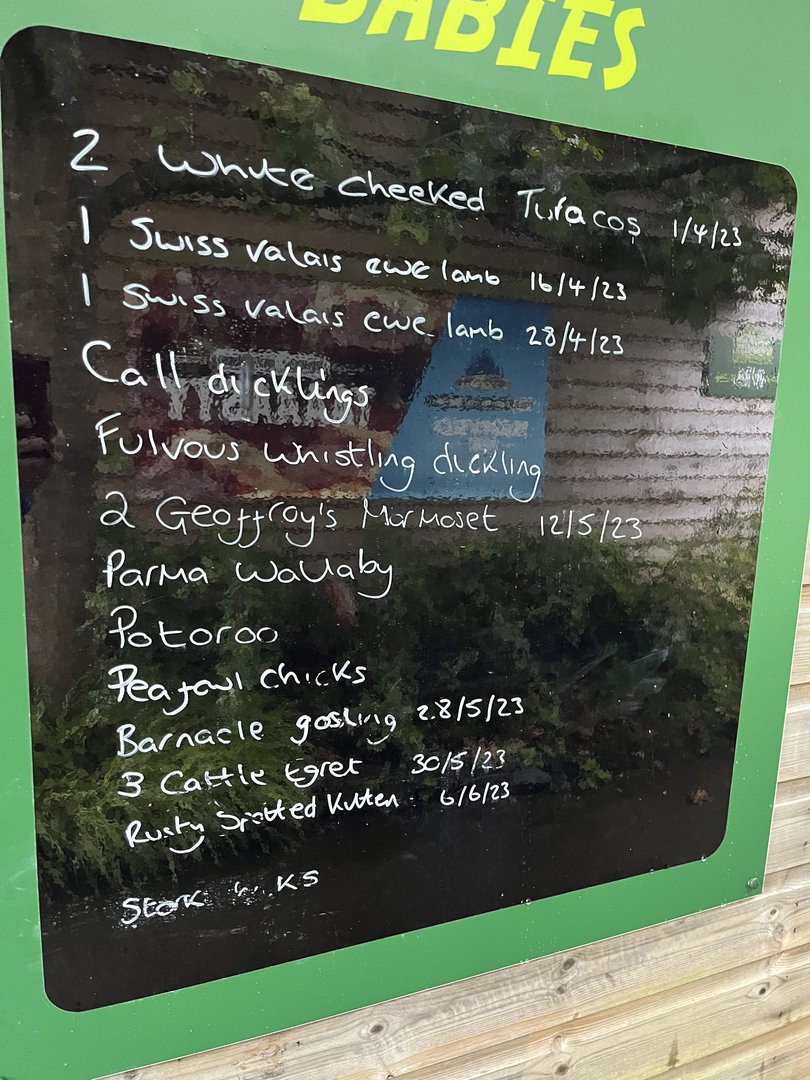 BABIES
2 White cheeked Turacos 1/4/23
1 Swiss valais ewe lamb 16/4/23
1 Swiss valais ewe lamb 28/4/23
Call dicklings
Fulvous whistling dickling
2 Geoffroy's Marmoset 12/5/23
Parma Wallaby
Potoroo
Peafowl chicks
Barnacle gosling 28/5/23
3 Cattle Egret 30/5/23
Rusty Spotted Kitten 6/6/23
Stork